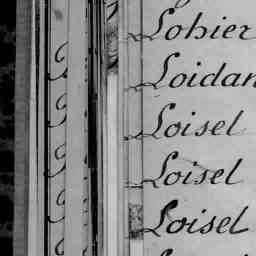 Lohier
Loidan
Loisel
Loisel
Loisel